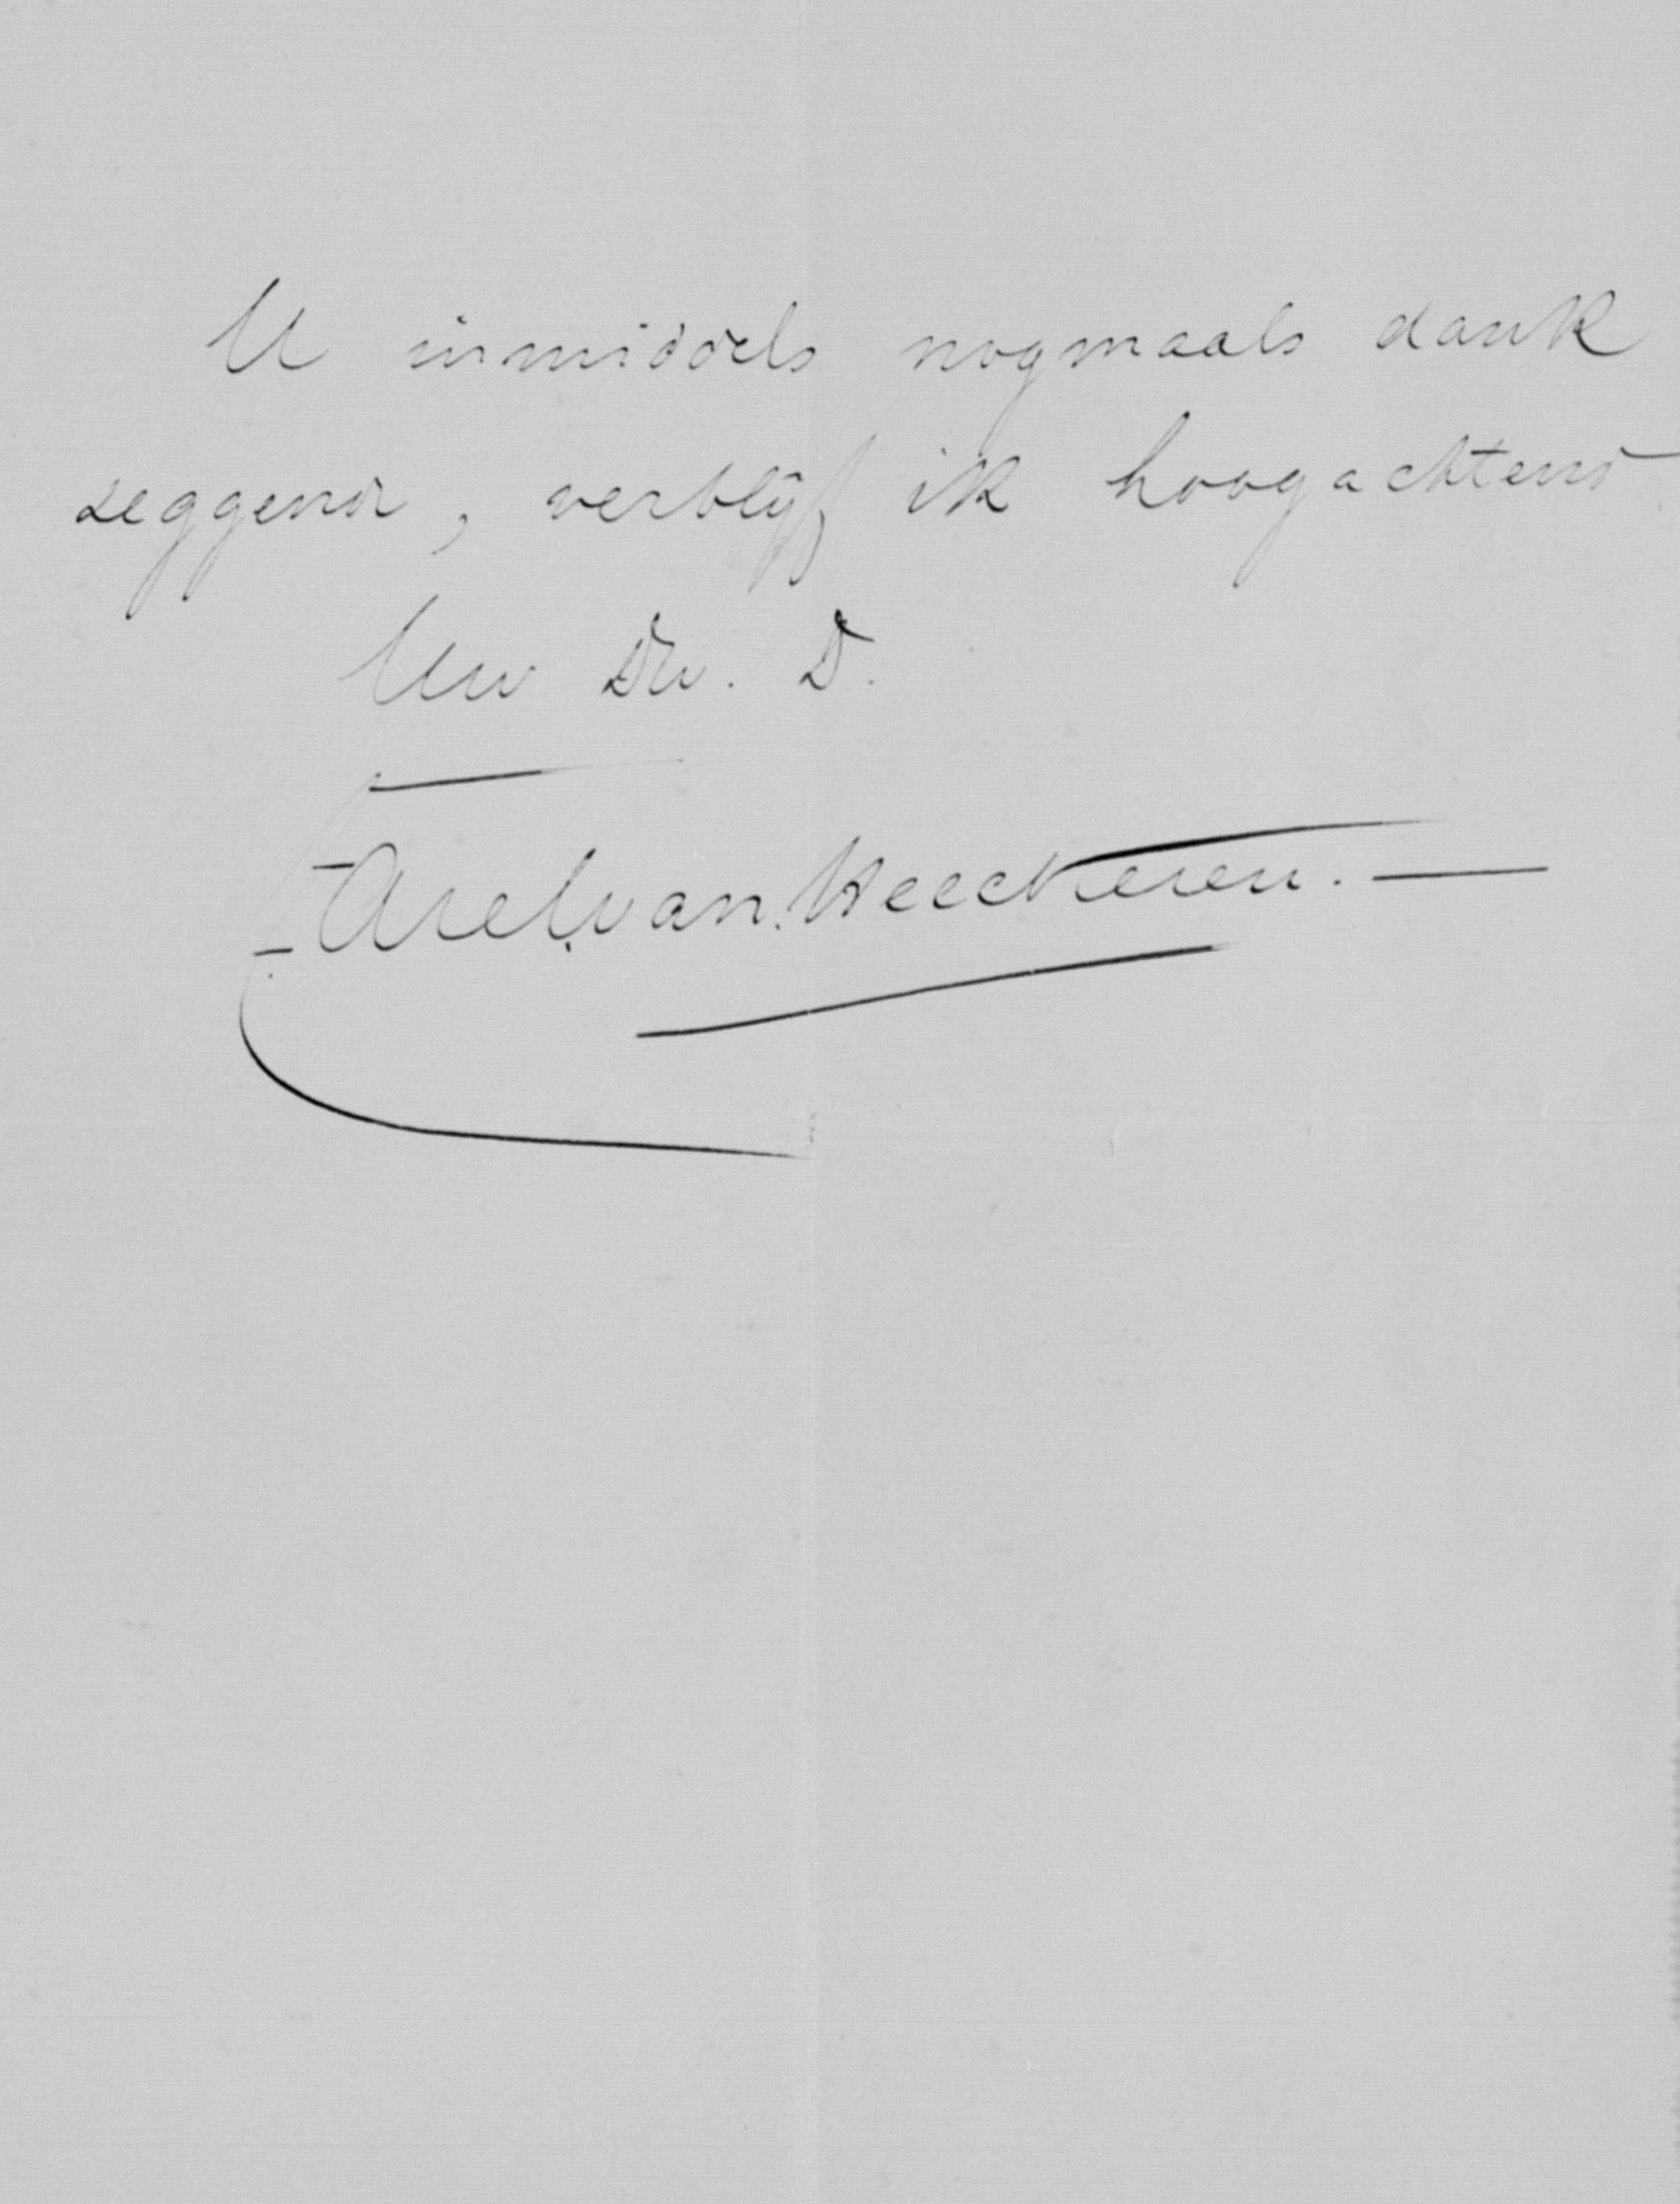 U inmiddels nogmaals dank
zeggend, verblijf ik hoogachtend
Uw Dw. D.
van Heeckeren.